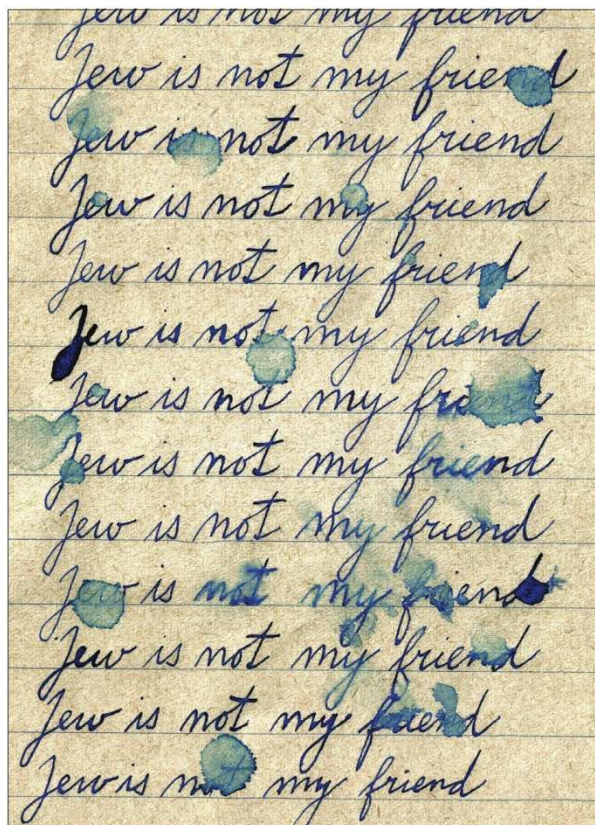 Jew is not my friend
Jew is not my friend
Jew is not my friend
Jew is not my friend
Jew is not my friend
Jew is not my friend
Jew is not my friend
Jew is not my friend
Jew is not my friend
Jew is not my friend
Jew is not my friend
Jew is not my friend
Jew is not my friend